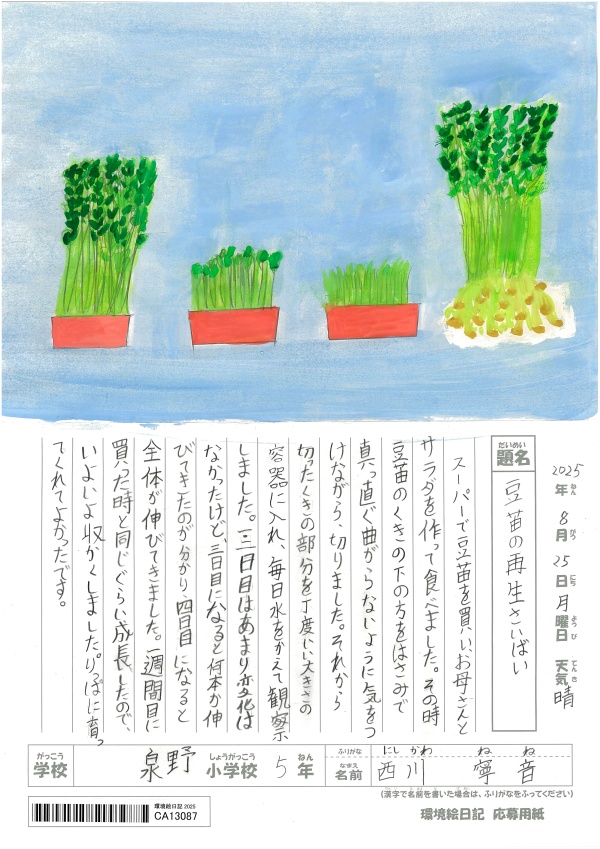 2025年 8月 25日 月曜日 天気 晴
ねん がつ にち ようび てんき
だいめい
題名
豆苗の再生さいばい
スーパーで豆苗を買い、お母さんと
サラダを作って食べました。その時
豆苗のくきの下の方をはさみで
真っ直ぐ曲がらないように気をつ
けながら、切りました。それから
切ったくきの部分を丁度いい大きさの
容器に入れ、毎日水をかえて観察
しました。一二日目はあまり変化は
なかったけど、三日目になると何本か伸
びてきたのが分かり、四日目になると
全体が伸びてきました。一週間目に
買った時と同じぐらい成長したので、
いよいよ収かくしました。りっぱに育っ
てくれてよかったです。
がっこう しょうがっこう ねん
学校 泉野 小学校 5年
ふりがな にしかわ ねね
なまえ
名前 西川 寧音
(漢字で名前を書いた場合は、ふりがなをふってください)
環境絵日記 2025
CA13087
環境絵日記 応募用紙